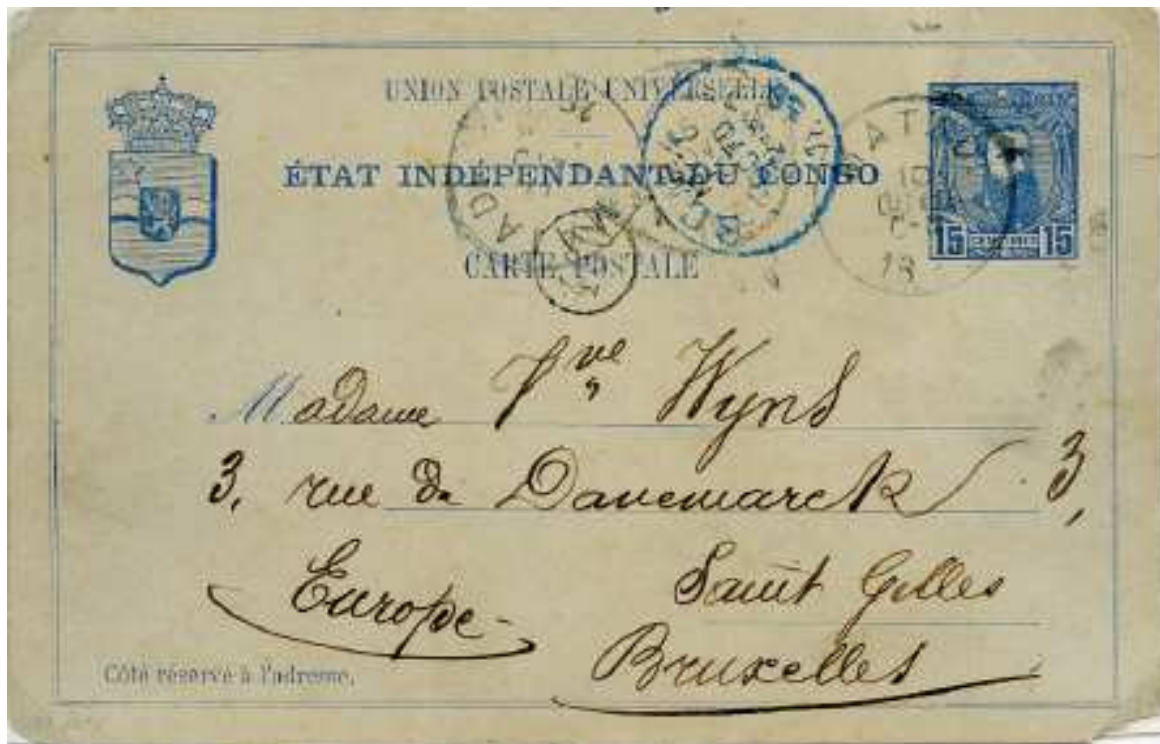 UNION POSTALE UNIVERSELLE
ÉTAT INDÉPENDANT DU CONGO
CARTE POSTALE
15 CENTIMES 15
MATADI
10
18
Madame Vve Wyns
3, rue de Danemarck 3,
Europe
Saint Gilles
Bruxelles
Côté réservé à l'adresse.